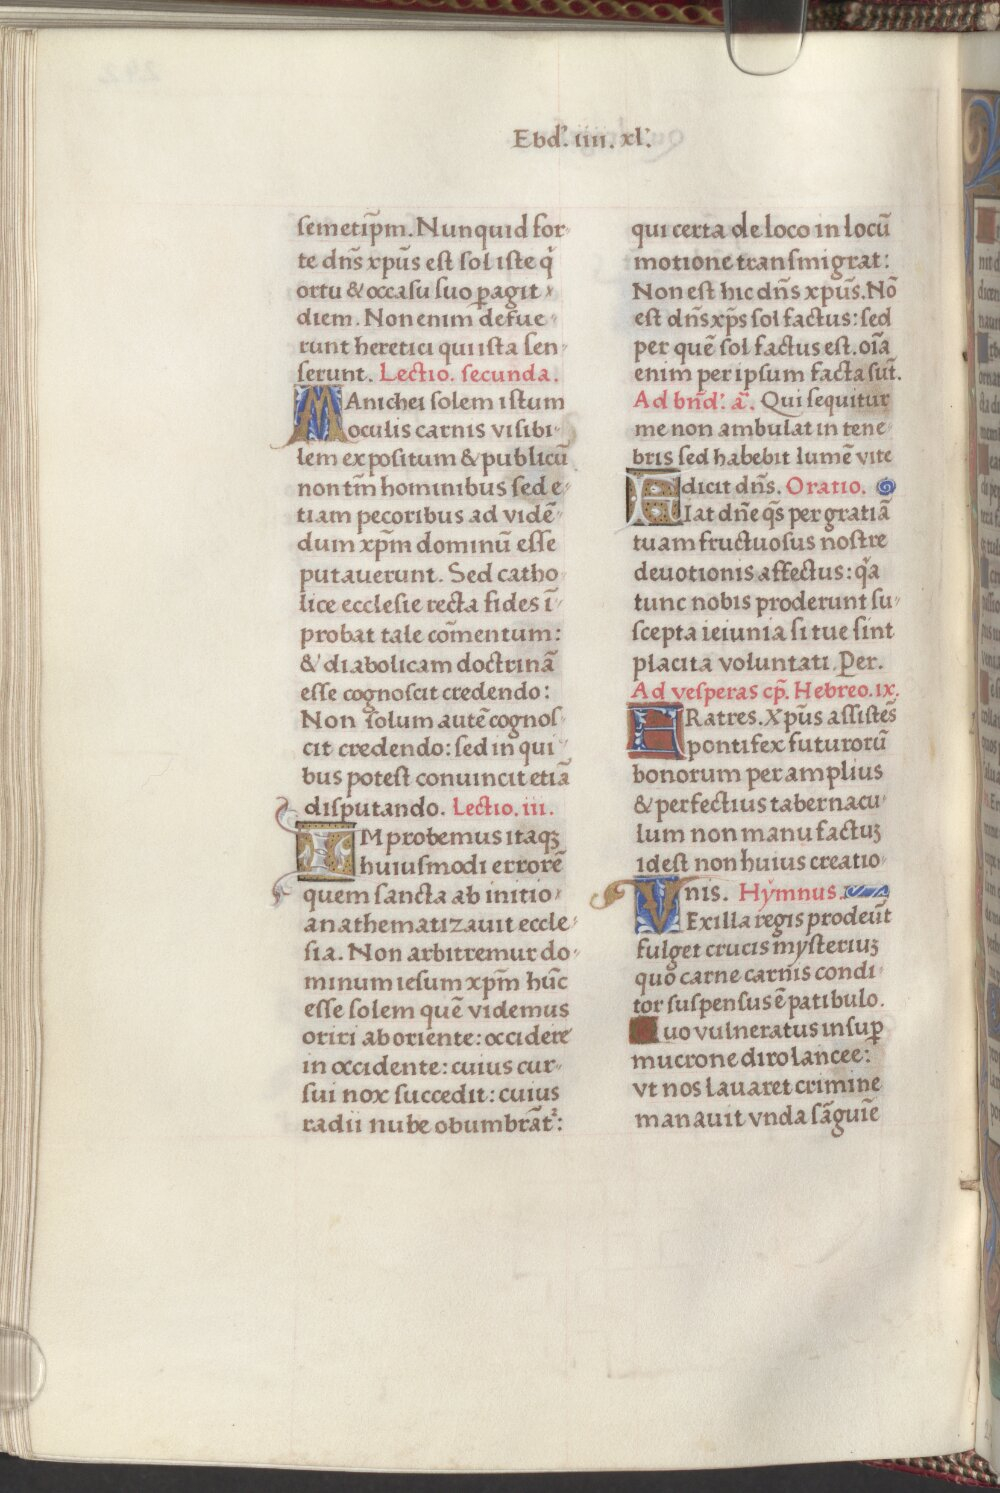 Ebdꝰ. iiii. xlꝰ.
semetip̃m. Nunquid for-
te dñs xp̃us est sol iste q̇
ortu & occasu suo ꝑagit
diem. Non enim defue-
runt heretici qui ista sen-
serunt. Lectio. secunda.
Manichei solem istum
oculis carnis visibi-
lem expositum & publicũ
non tm̃ hominibus sed e-
tiam pecoribus ad vidẽ-
dum xp̃m dominũ esse
putaverunt. Sed catho-
lice ecclesie recta fides ĩ-
probat tale com̃entum:
& diabolicam doctrinã
esse cognoscit credendo:
Non solum autẽ cognos-
cit credendo: sed in qui-
bus potest convincit etiã
disputando. Lectio. iii.
Improbemus itaqꝫ
huiusmodi errorẽ
quem sancta ab initio
anathematizavit eccle-
sia. Non arbitremur do-
minum iesum xp̃m hũc
esse solem quẽ videmus
oriri ab oriente: occidere
in occidente: cuius cur-
sui nox succedit: cuius
radii nube obumbrãtᷣ:
qui certa de loco in locũ
motione transmigrat:
Non est hic dñs xp̃us. Nõ
est dñs xp̃s sol factus: sed
per quẽ sol factus est. oĩa
enim per ipsum facta sũt.
Ad bñdꝰ. ã. Qui sequitur
me non ambulat in tene-
bris sed habebit lumẽ vite
dicit dñs. Oratio.
Fiat dñe q̃s per gratiã
tuam fructuosus nostre
devotionis affectus: q̃a
tunc nobis proderunt su-
scepta ieiunia si tue sint
placita voluntati. Per.
Ad vesperas cp̃. Hebreo. ix.
FRatres. Xp̃us assistẽs
pontifex futurorũ
bonorum per amplius
& perfectius tabernacu-
lum non manu factuꝫ
idest non huius creatio-
nis. Hẏmnus.
VExilla regis prodeũt
fulget crucis mysteriuꝫ
quo carne carnis condi-
tor suspensus ẽ patibulo.
Quo vulneratus insuꝑ
mucrone diro lancee:
vt nos lavaret crimine
manavit vnda sãguiẽ